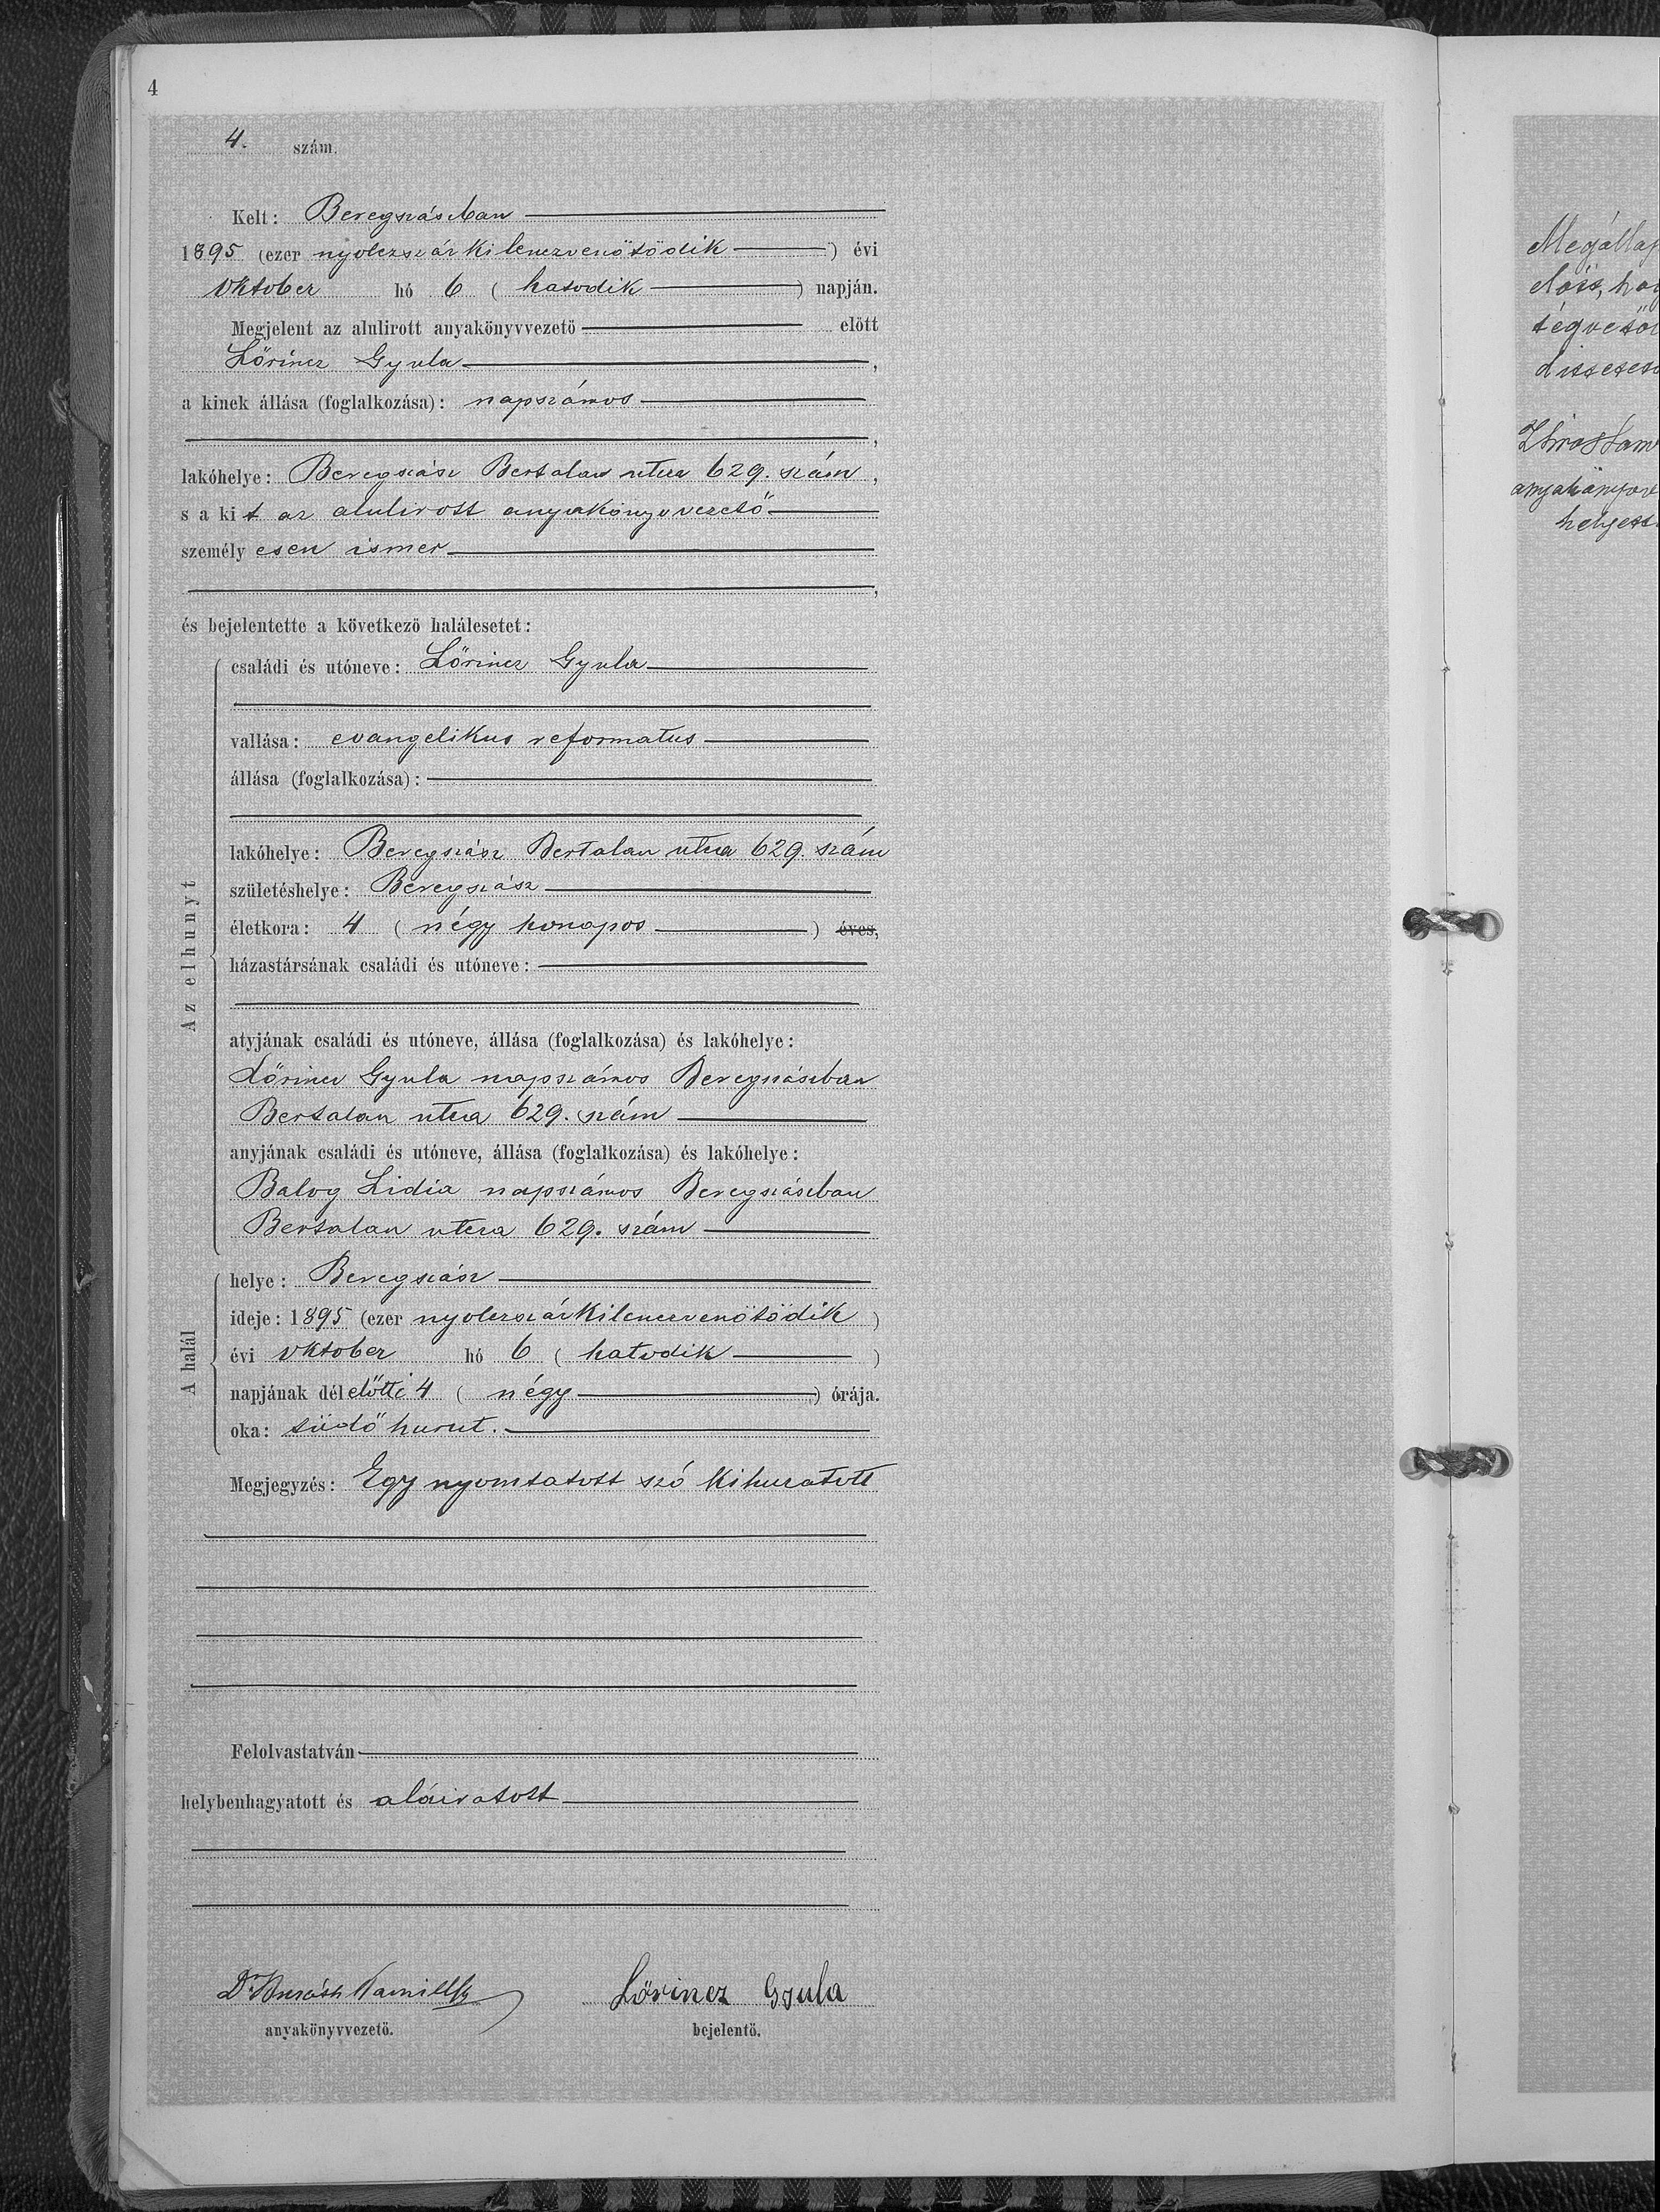 4
4. szám.
Kelt: Beregszászban
1895 (ezer nyolczszáz kilenczvenötödik) évi
oktober hó 6 (hatodik) napján.
Megjelent az alulirott anyakönyvvezetö elött
Lőrincz Gyula,
a kinek állása (foglalkozása): napszámos
,
lakóhelye: Beregszász Bertalan utcza 629. szám,
s a kit az alulirott anyakönyvvezető
személyesen ismer
,
és bejelentette a következö halálesetet:
Az elhunyt
családi és utóneve: Lőrincz Gyula
vallása: evangelikus reformatus
állása (foglalkozása):
lakóhelye: Beregszász Bertalan utcza 629. szám
születéshelye: Beregszász
életkora: 4 (négy honapos) éves,
házastársának családi és utóneve:
atyjának családi és utóneve, állása (foglalkozása) és lakóhelye:
Lőrincz Gyula napszámos Beregszászban
Bertalan utcza 629. szám
anyjának családi és utóneve, állása (foglalkozása) és lakóhelye:
Balog Lidia napszámos Beregszászban
Bertalan utcza 629. szám
A halál
helye: Beregszász
ideje: 1895 (ezer nyolczszázkilenczvenötödik)
évi oktober hó 6 (hatodik)
napjának délelőtti 4 (négy) órája.
oka: tüdőhurut.
Megjegyzés: Egy nyomtatott szó kihuzatott
Felolvastatván
helybenhagyatott és aláiratott
Dr Lőrincz Gyula
anyakönyvvezetö. bejelentö.
Megállap
előtt, hog